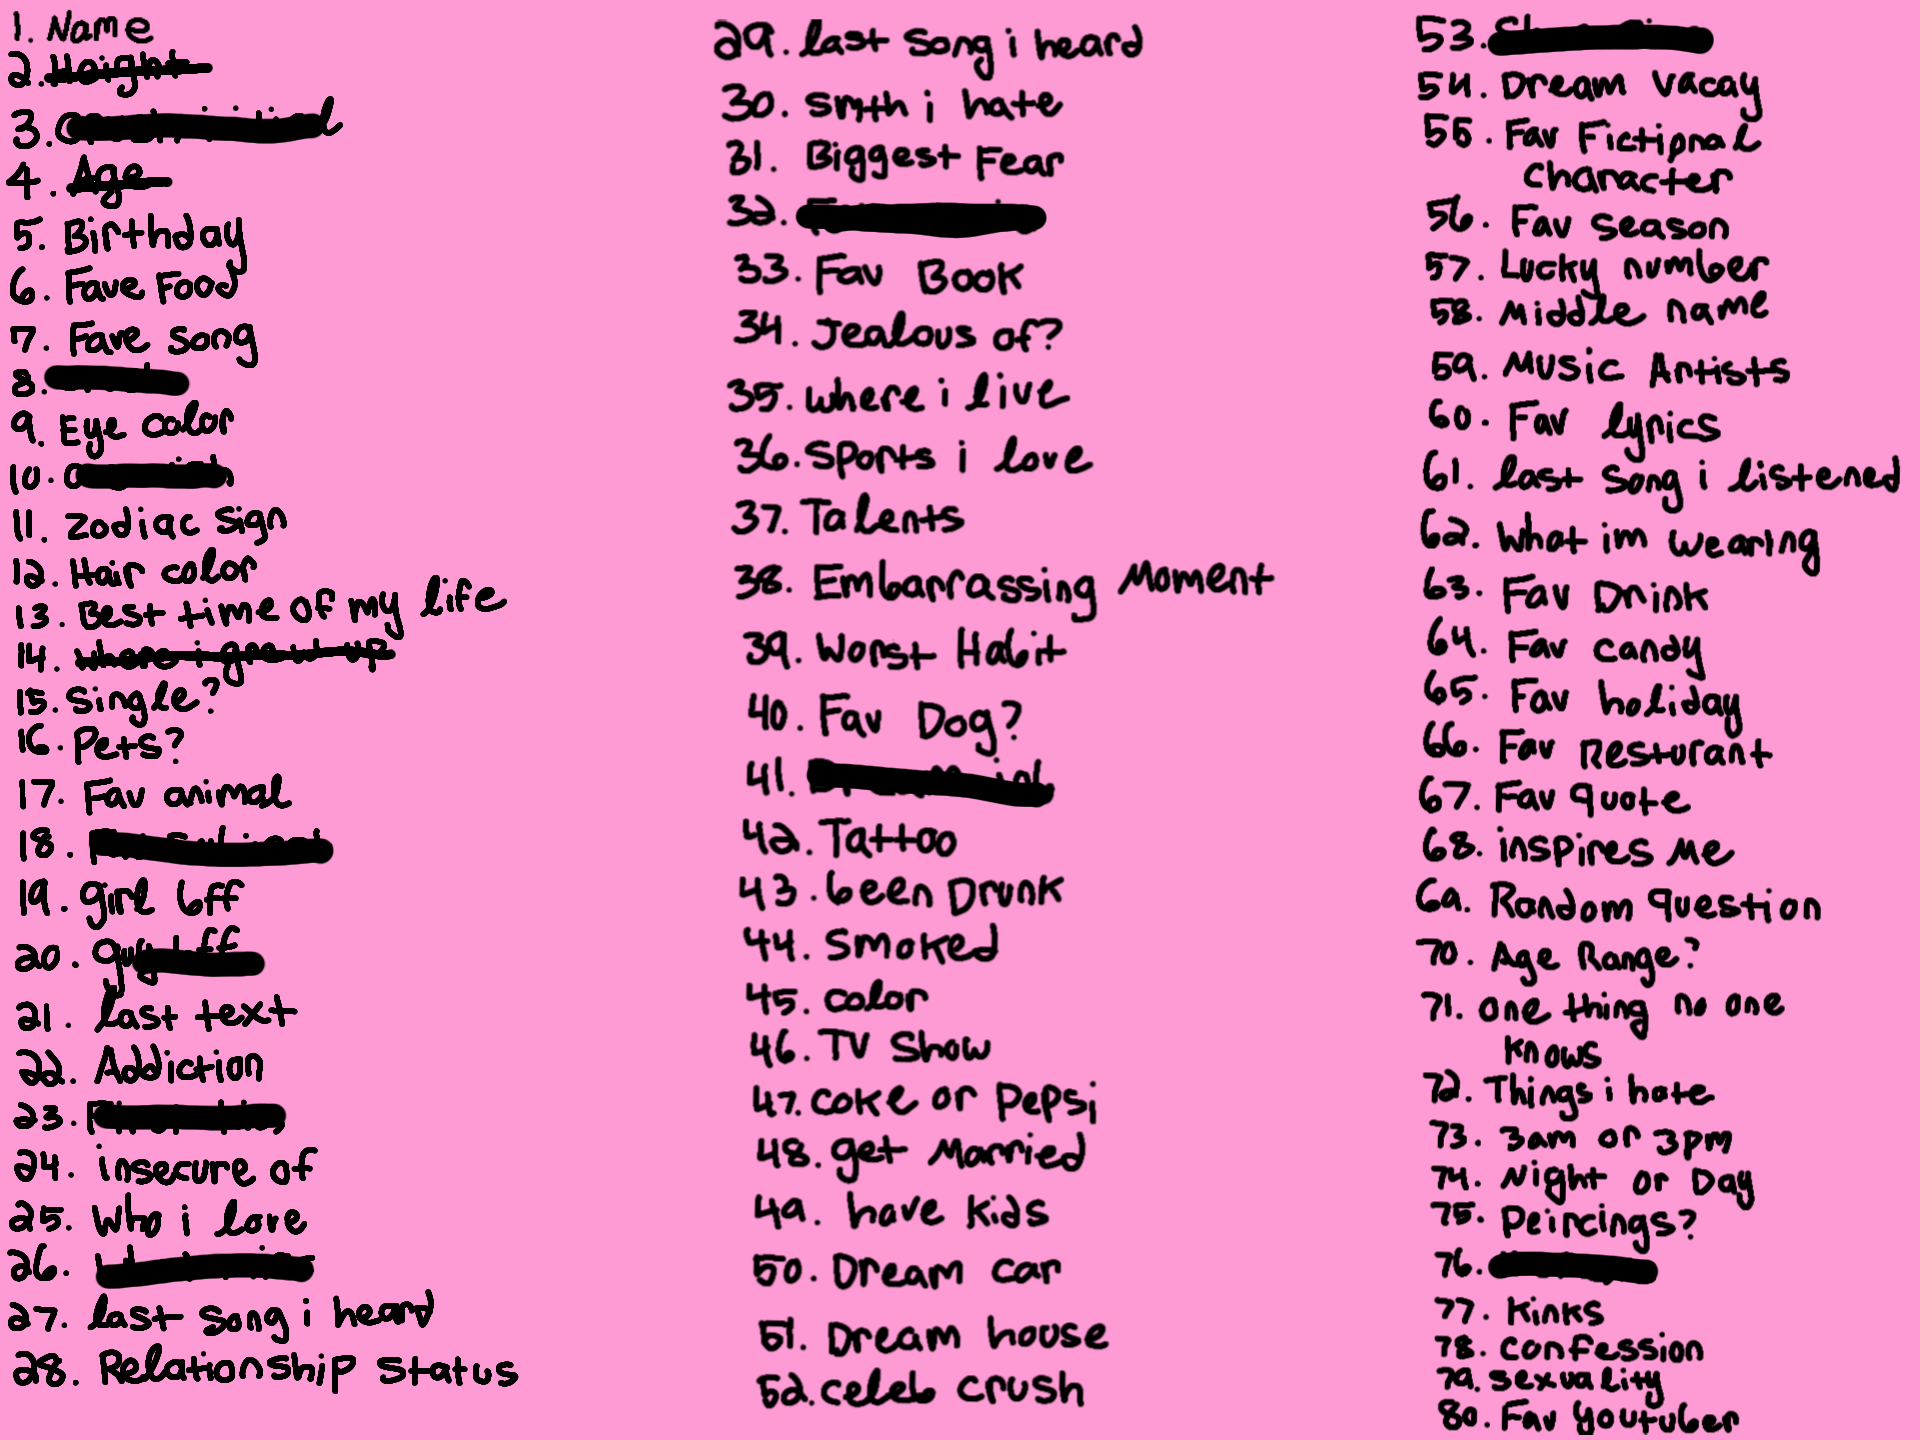 1. Name
2. Height
3.
4. Age
5. Birthday
6. Fave Food
7. Fave song
8.
9. Eye color
10.
11. Zodiac Sign
12. Hair color
13. Best time of my life
14. where i grew up
15. Single?
16. Pets?
17. Fav animal
18.
19. girl bff
20. guy bff
21. last text
22. Addiction
23.
24. insecure of
25. Who i love
26.
27. last song i heard
28. Relationship Status
29. last song i heard
30. smth i hate
31. Biggest Fear
32.
33. Fav Book
34. Jealous of?
35. where i live
36. Sports i love
37. Talents
38. Embarrassing Moment
39. Worst Habit
40. Fav Dog?
41.
42. Tattoo
43. been Drunk
44. Smoked
45. color
46. TV Show
47. Coke or Pepsi
48. get Married
49. have kids
50. Dream car
51. Dream house
52. celeb crush
53.
54. Dream Vacay
55. Fav Fictional
Character
56. Fav season
57. Lucky number
58. Middle name
59. Music Artists
60. Fav lyrics
61. last song i listened
62. What im wearing
63. Fav Drink
64. Fav candy
65. Fav holiday
66. Fav Resturant
67. Fav quote
68. inspires Me
69. Random question
70. Age Range?
71. one thing no one
knows
72. Things i hate
73. 3am or 3pm
74. Night or Day
75. Peircings?
76.
77. Kinks
78. confession
79. sexuality
80. Fav youtuber